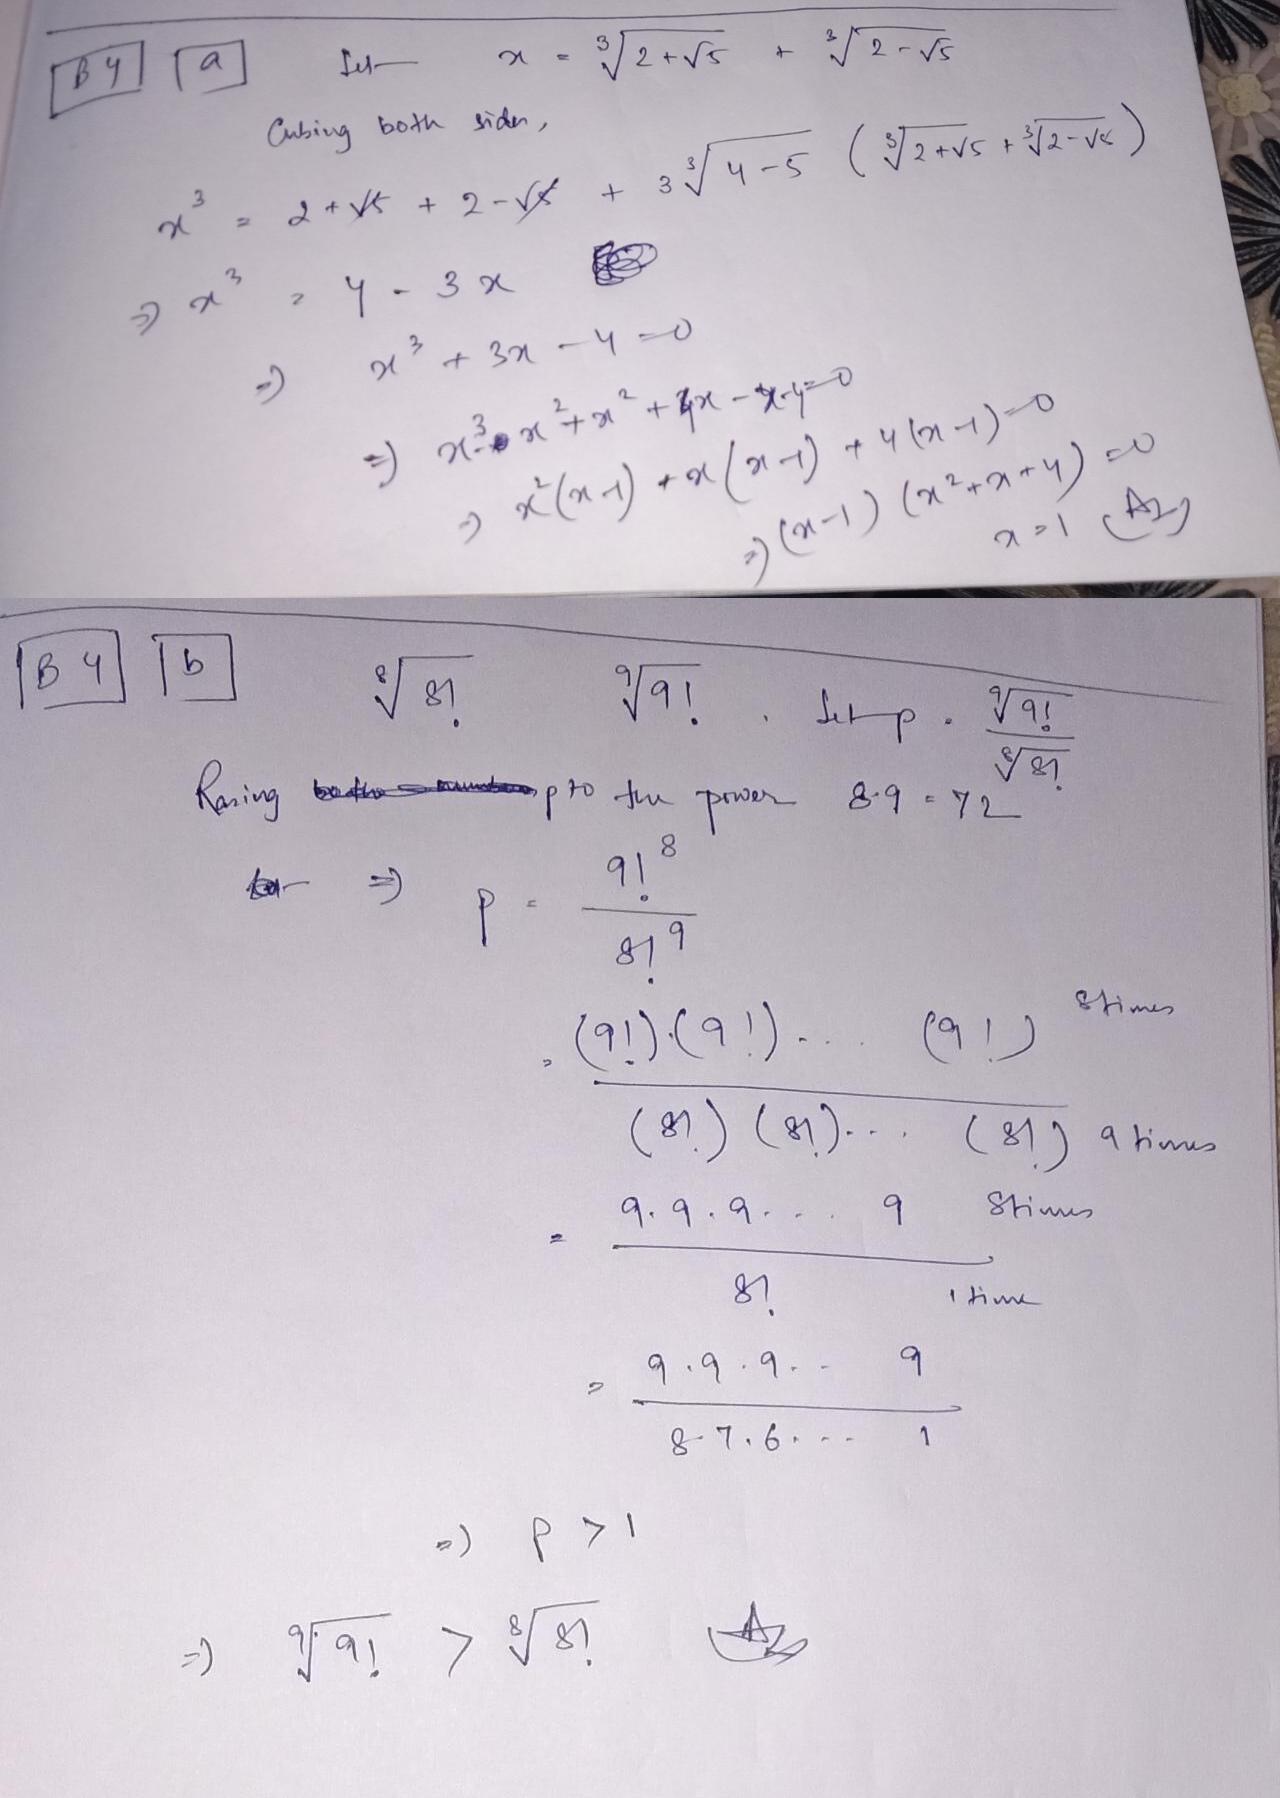 B4 a Let x = ∛(2+√5) + ∛(2-√5)
Cubing both sides,
x³ = 2+√5 + 2-√5 + 3∛(4-5) (∛(2+√5) + ∛(2-√5))
⇒ x³ = 4 - 3x
⇒ x³ + 3x - 4 = 0
⇒ x³ - x² + x² + 4x - x - 4 = 0
⇒ x²(x-1) + x(x-1) + 4(x-1) = 0
⇒ (x-1) (x²+x+4) = 0
x = 1 (Ans)
B4 b ⁸√8! ⁹√9! . Let p = ⁹√9! / ⁸√8!
Rasing p to the power 8·9 = 72
⇒ p = 9!⁸ / 8!⁹
= (9!)·(9!)... (9!) 8 times
(8!) (8!)... (8!) 9 times
= 9·9·9... 9 8 times
8! 1 time
= 9·9·9... 9
8·7·6... 1
⇒ p > 1
⇒ ⁹√9! > ⁸√8! Ans